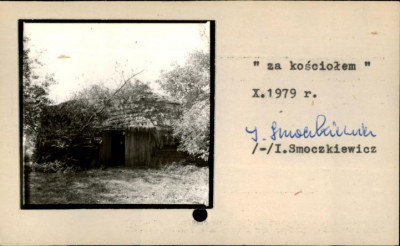 " za kościołem "
X.1979 r.
I. Smoczkiewicz
/-/I.Smoczkiewicz